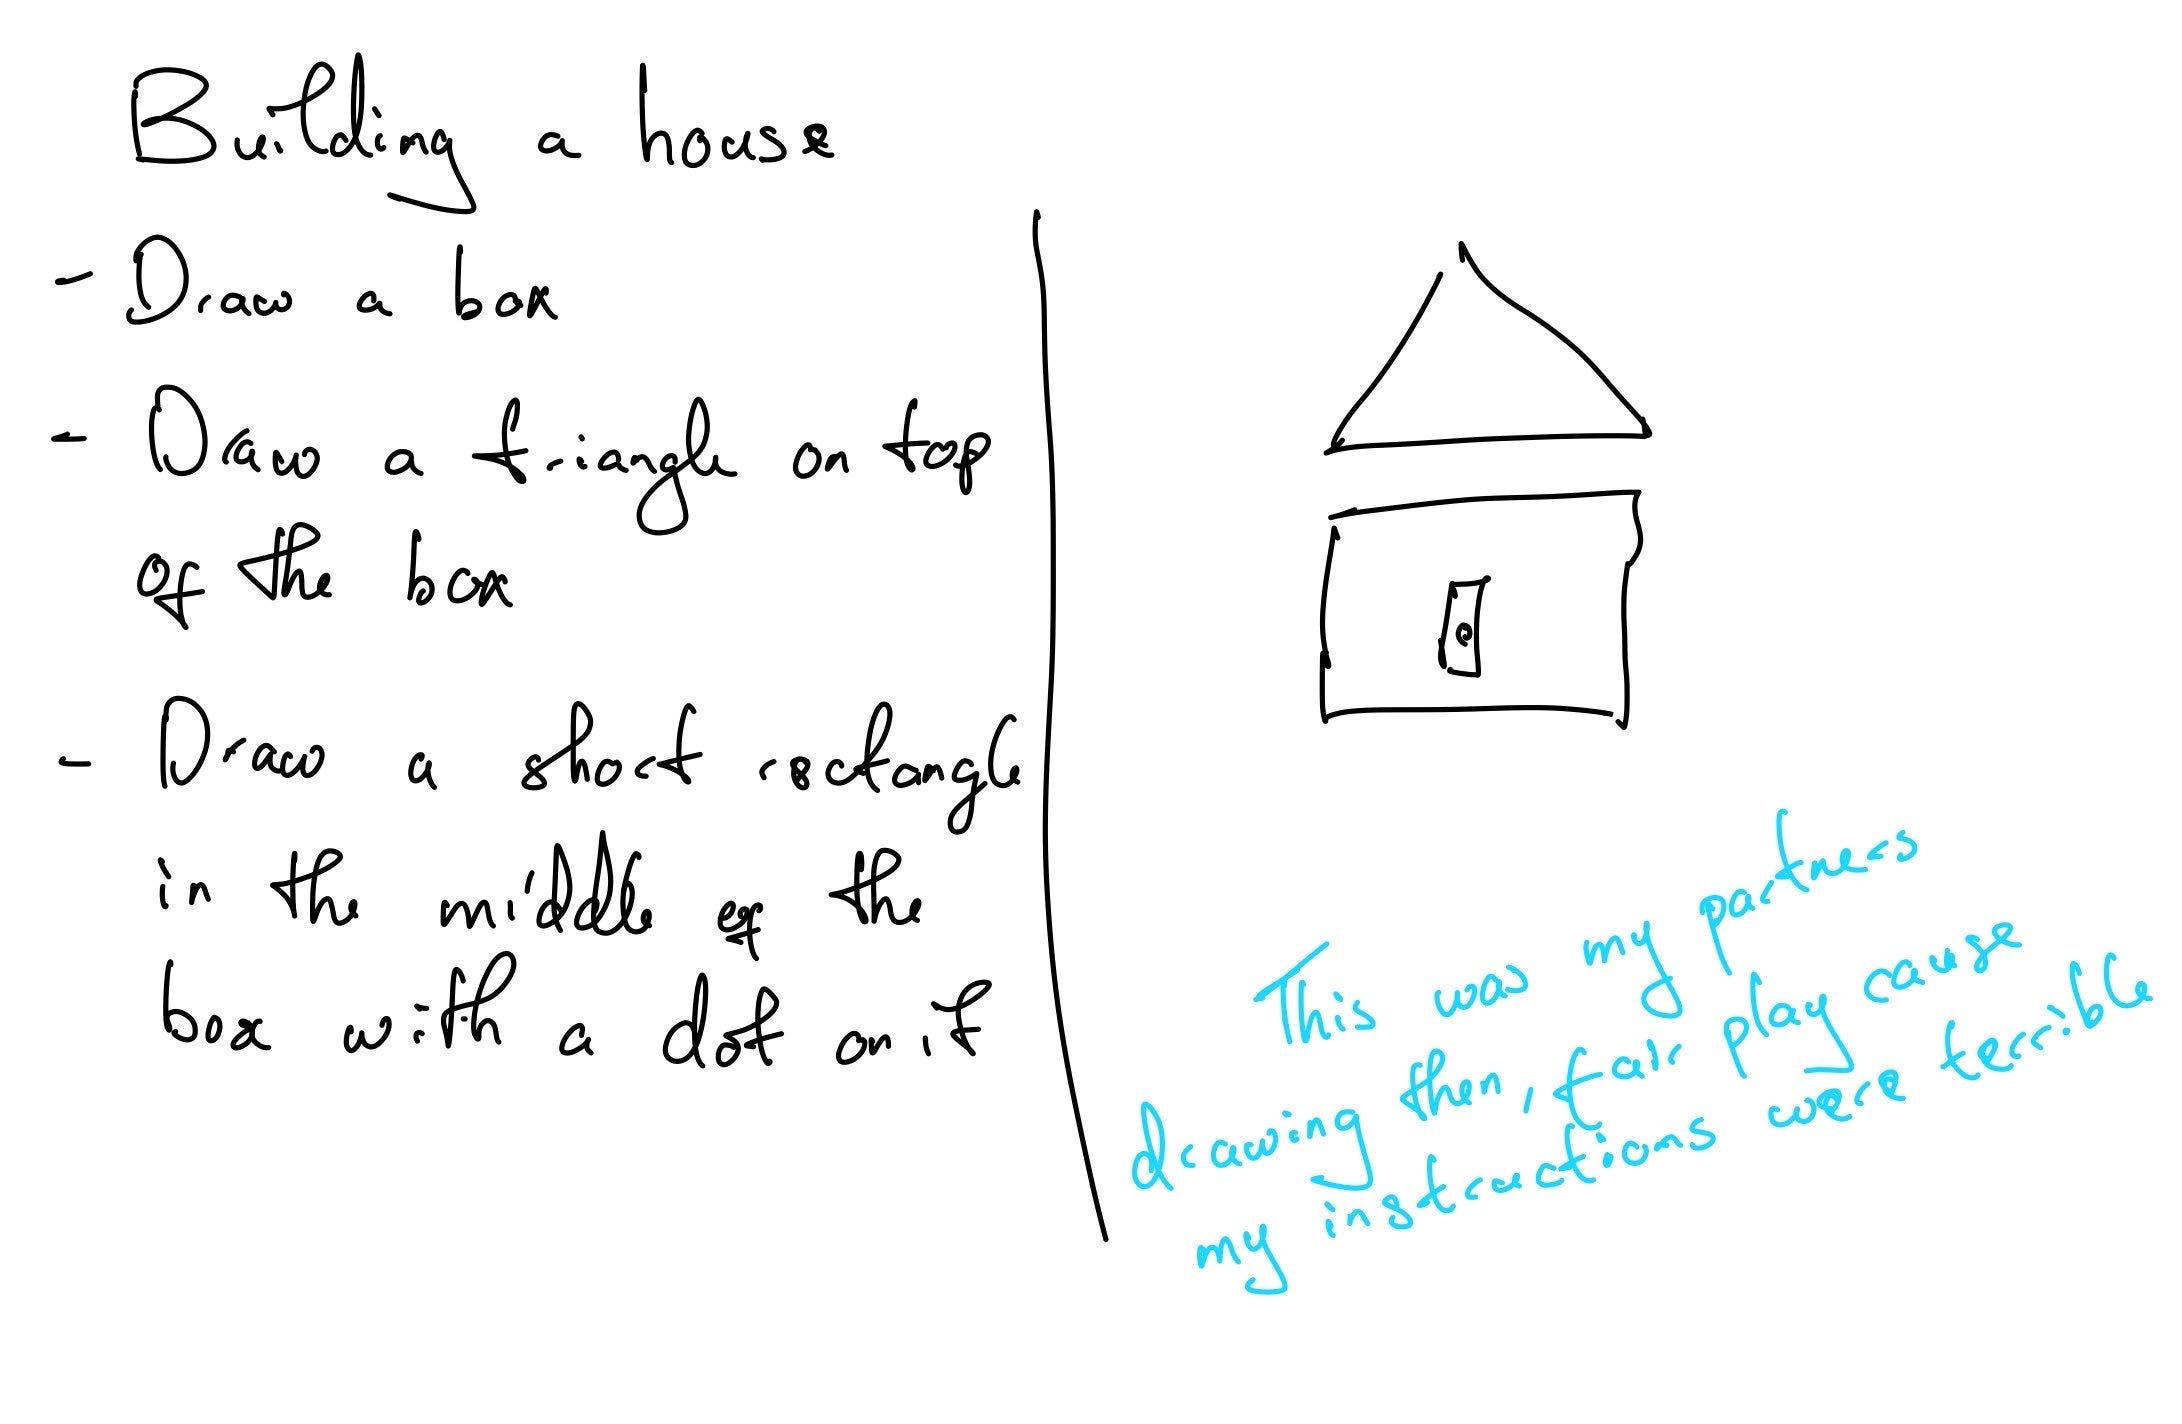 Building a house
- Draw a box
- Draw a triangle on top
of the box
- Draw a short rectangle
in the middle of the
box with a dot on it
This was my partners
drawing then, fair play cause
my instructions were terrible